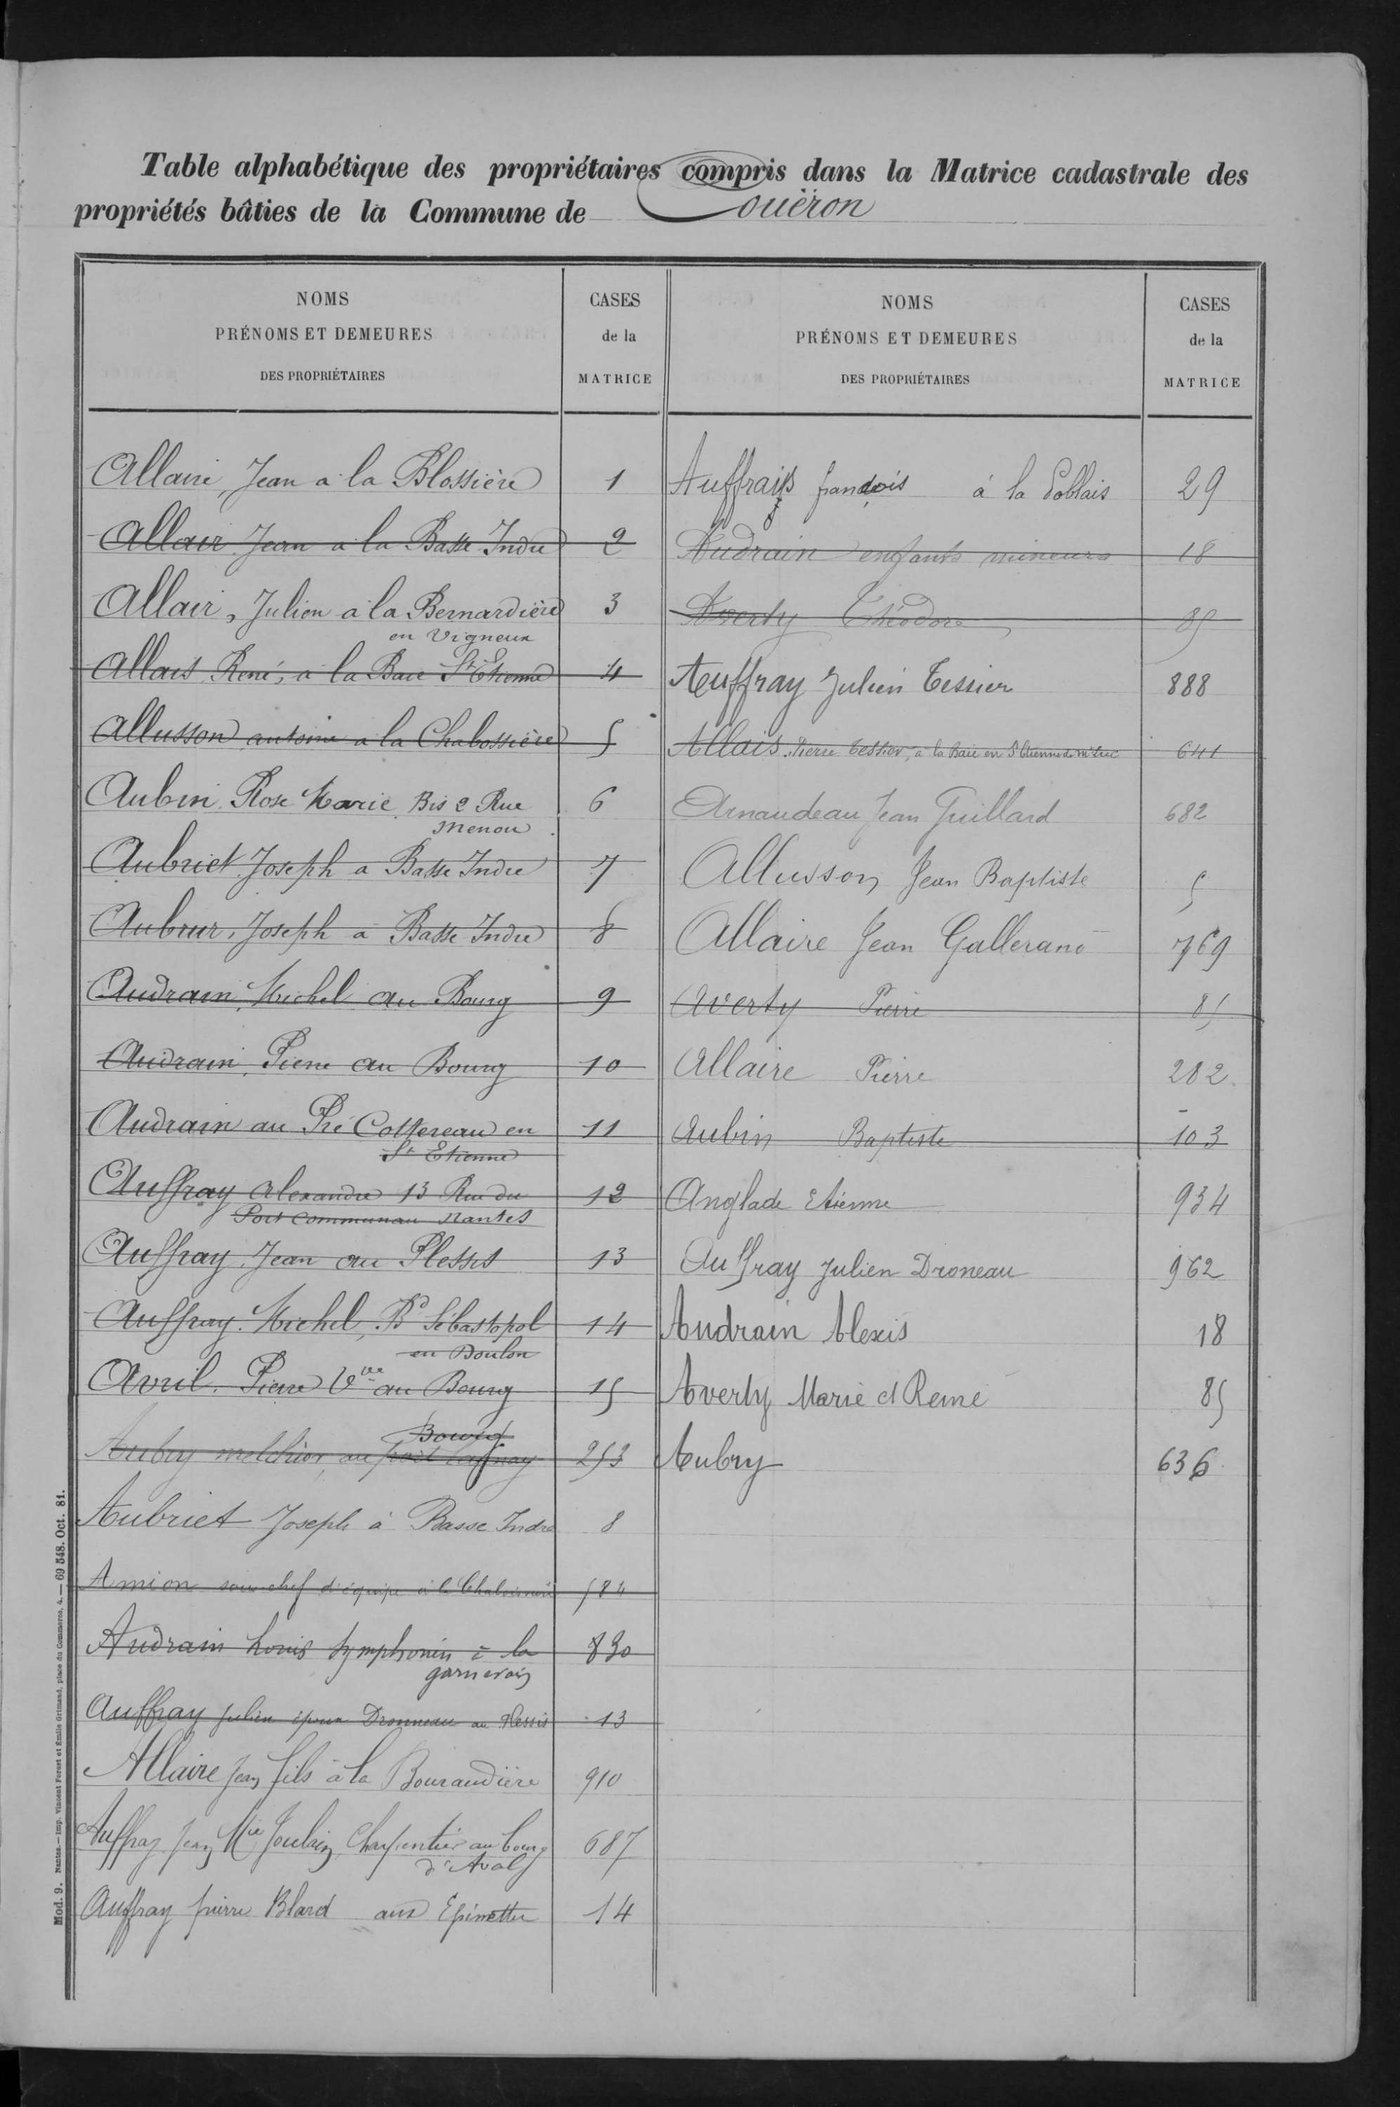 Table alphabétique des propriétaires compris dans la Matrice cadastrale des
propriétés bâties de la Commune de Couëron
NOMS
PRÉNOMS ET DEMEURES
DES PROPRIÉTAIRES
CASES
de la
MATRICE
Allaire, Jean à la Blossière 1
Allair Jean à la Basse Indre 2
Allair, Julien à la Bernardière 3
en Vigneux
Allais René, à la Baie St Etienne 4
Allusson antoine a la Chabossière 5
Aubin Rose Marie Bis 2 Rue 6
Menou
Aubriet Joseph a Basse Indre 7
Joseph a Basse Indre 8
Audrain, Michel au Bourg 9
Audrain, Pierre au Bourg 10
Audrain au Pré Cottereau en 11
St Etienne
Auffray alexandre 13 Rue du 12
Port Communau Nantes
Auffray Jean au Plessis 13
Auffray Michel, Bd Sébastopol 14
en Doulon
Avril Pierre Vve au Bourg 15
Bourg
Aubry melchior, au 253
Aubriet Joseph à Basse Indre 8
Amion sous-chef d'équipe à la 584
Audrain Louis Symphorien à la 830
garnerais
Auffray Julien époux Dronneau au Plessis 13
Allaire Jean fils à la Bouraudière 910
Auffray Jean Mie Joulain Charpentier au bourg 687
d'Avals
Auffray pierre Blard aux Epinettes 14
NOMS
PRÉNOMS ET DEMEURES
DES PROPRIÉTAIRES
CASES
de la
MATRICE
Auffrais françois à la 29
Audrain enfants mineurs 18
Averty Théodore 85
Auffray Julien Tessier 888
Allais Pierre Tessier, à la Baie en St Etienne de Mt luc 641
Arnaudeau Jean Guillard 682
Allusson Jean Baptiste 5
Allaire Jean Gallerand 769
Averty Pierre 85
Allaire Pierre 282
Aubin Baptiste 103
Anglade Etienne 934
Auffray Julien Droneau 962
Audrain Alexis 18
Averty Marie et René 85
Aubry 636
Mod. 9. Nantes.—Imp. Vincent Forest et Emile Grimaud, place du Commerce, 4. — 69 548. Oct. 81.